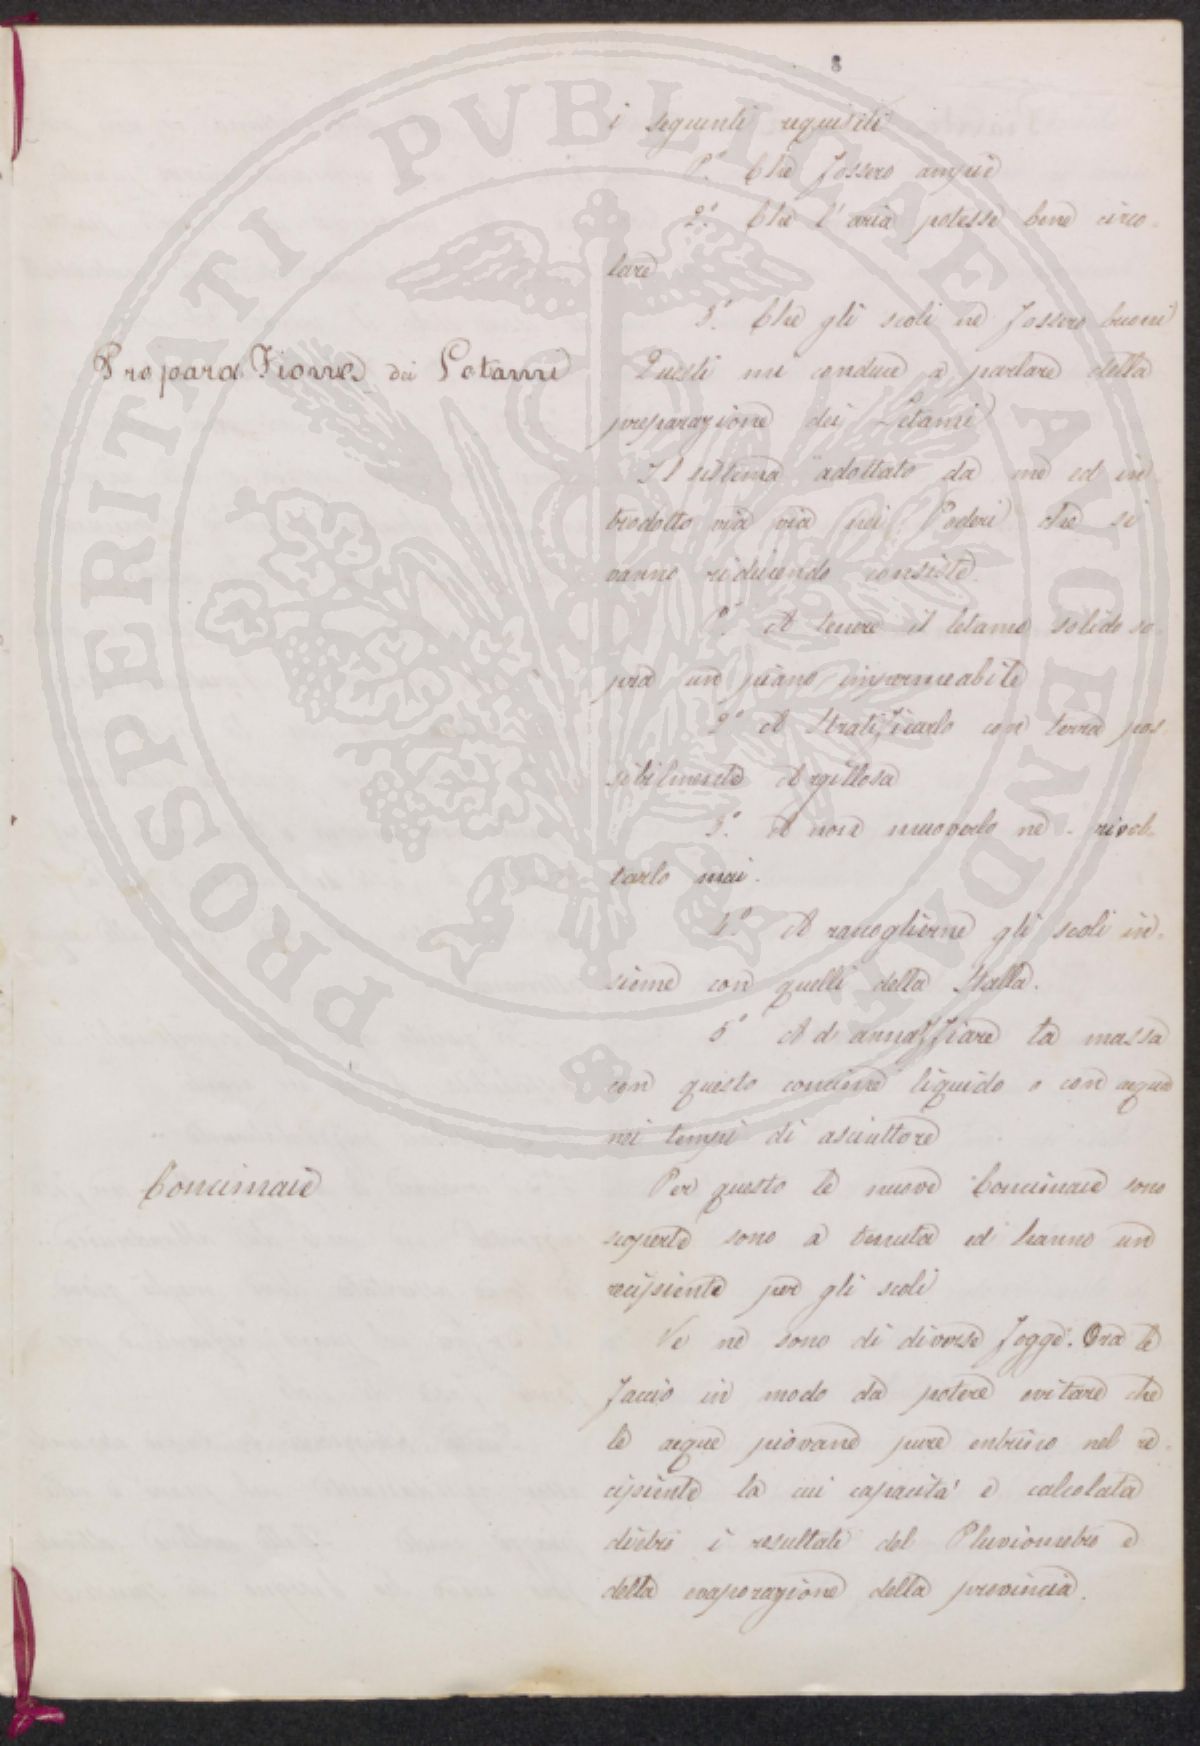 8
i seguenti requisiti
1.º Che fossero ampie
2.º Che l'aria potesse bene circo-
lare
3.º Che gli scoli ne fossero buoni
Preparazione dei Letami
Questi mi conduce a parlare della
preparazione dei Letami
Il sistema adottato da me ed in
trodotto via via nei Poderi che si
vanno riducendo consiste
1.º A tenere il letame solido so-
pra un piano impermeabile
2º A stratificarlo con terra pos-
sibilmente Argillosa
3.º A non muoverlo ne - rivol-
tarlo mai.
4.º A raccoglierne gli scoli in-
sieme con quelli della Stalla.
5º A di annaffiare la massa
con questo concime liquido o con acqua
nei tempi di asciuttore
Concimaie
Per questo le nuove Concimaie sono
scoperte sono a tenuta ed hanno un
recipiente per gli scoli
Ve ne sono di diverse fogge. Ora le
faccio in modo da potere evitare che
le acque piovane pure entrino nel re-
cipiente la cui capacita' e calcolata
dietro i resultati del Pluviometro e
della evaporazione della provincia.
PROSPERITATI PVBLICAE AVGENDAE